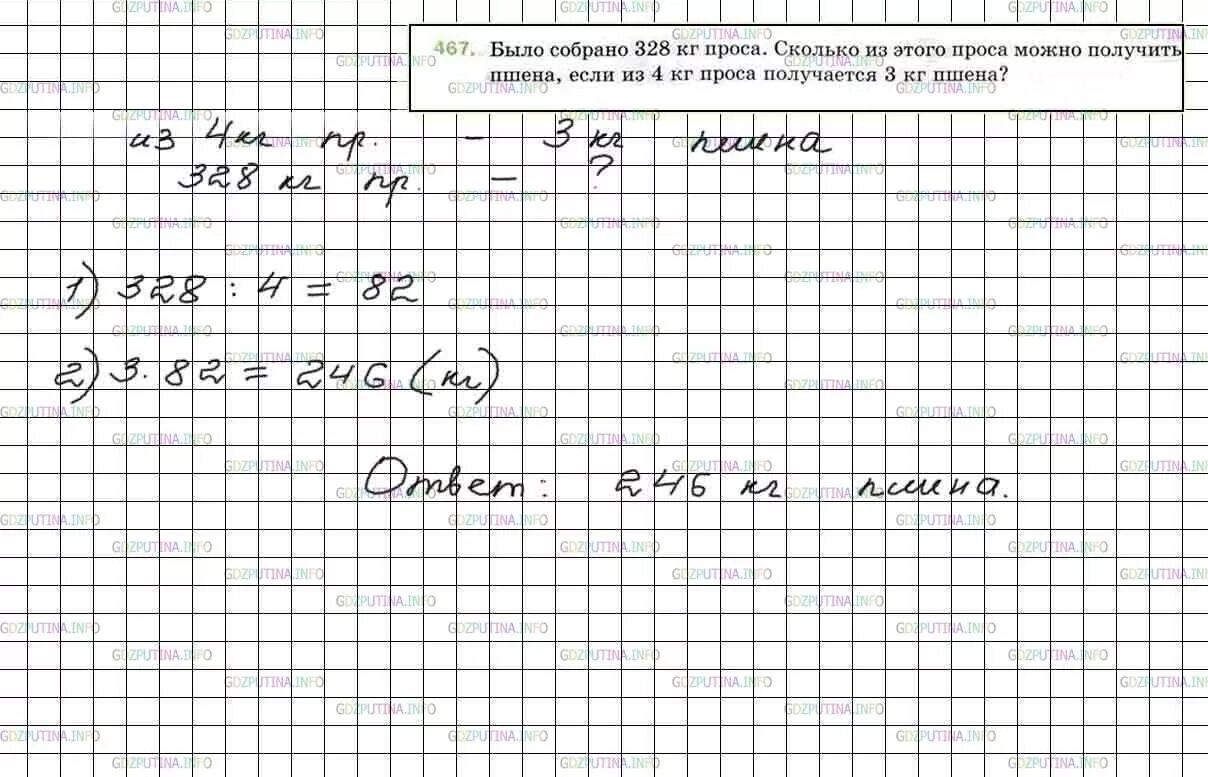 467. Было собрано 328 кг проса. Сколько из этого проса можно получить
пшена, если из 4 кг проса получается 3 кг пшена?
из 4 кг пр. – 3 кг пшена
328 кг пр. – ?
1) 328 : 4 = 82
2) 3 · 82 = 246 (кг)
Ответ: 246 кг пшена.
GDZPUTINA.INFO